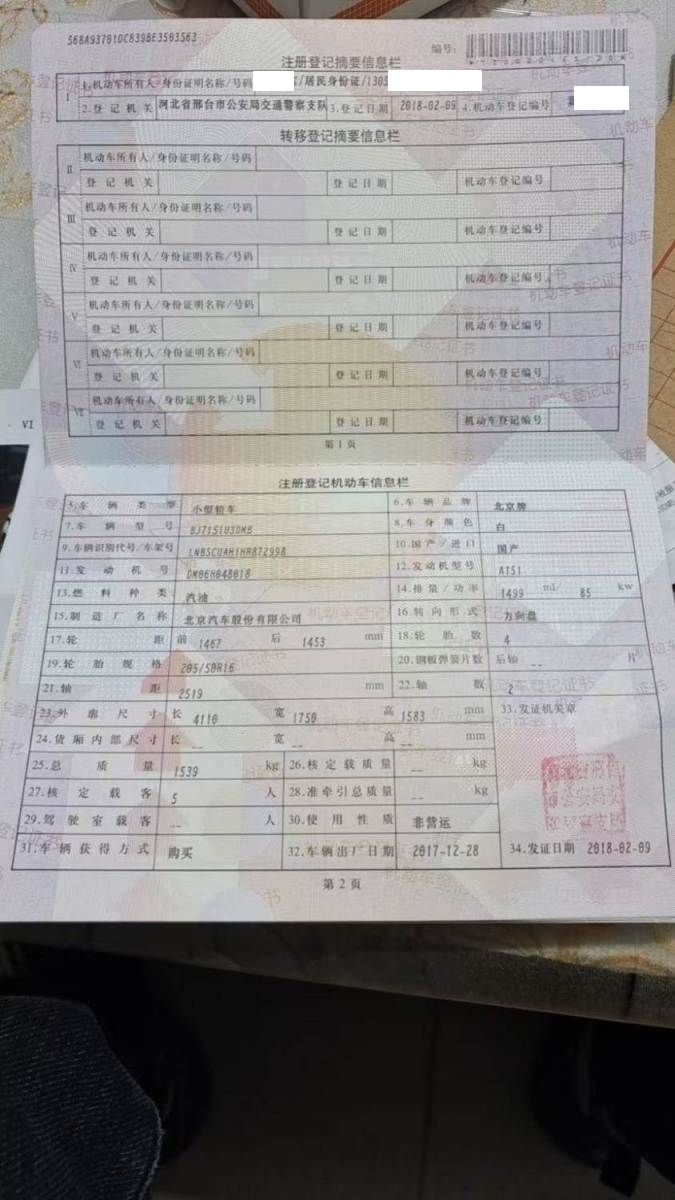 568A93701DC8398E3503563
编号:
注册登记摘要信息栏
I 1.机动车所有人/身份证明名称/号码 /居民身份证/1305
2.登记机关 河北省邢台市公安局交通警察支队 3.登记日期 2018-02-09 4.机动车登记编号
转移登记摘要信息栏
II 机动车所有人/身份证明名称/号码
登记机关 登记日期 机动车登记编号
III 机动车所有人/身份证明名称/号码
登记机关 登记日期 机动车登记编号
IV 机动车所有人/身份证明名称/号码
登记机关 登记日期 机动车登记编号
V 机动车所有人/身份证明名称/号码
登记机关 登记日期 机动车登记编号
VI 机动车所有人/身份证明名称/号码
登记机关 登记日期 机动车登记编号
VII 机动车所有人/身份证明名称/号码
登记机关 登记日期 机动车登记编号
第1页
VI
注册登记机动车信息栏
5.车辆类型 小型轿车 6.车辆品牌 北京牌
7.车辆型号 BJ7151U3DMB 8.车身颜色 白
9.车辆识别代号/车架号 LNBSCUAH1HR872998 10.国产/进口 国产
11.发动机号 DM06H048018 12.发动机型号 A151
13.燃料种类 汽油 14.排量/功率 1499 ml/ 85 kw
15.制造厂名称 北京汽车股份有限公司 16.转向形式 方向盘
17.轮距 前 1467 后 1453 mm 18.轮胎数 4
19.轮胎规格 205/50R16 20.钢板弹簧片数 后轴 -- 片
21.轴距 2519 mm 22.轴数 2
23.外廓尺寸 长 4110 宽 1750 高 1583 mm 33.发证机关章
24.货厢内部尺寸 长 -- 宽 -- 高 -- mm
25.总质量 1539 kg 26.核定载质量 -- kg
27.核定载客 5 人 28.准牵引总质量 -- kg
29.驾驶室载客 -- 人 30.使用性质 非营运
31.车辆获得方式 购买 32.车辆出厂日期 2017-12-28 34.发证日期 2018-02-09
第2页
机动车登记证书